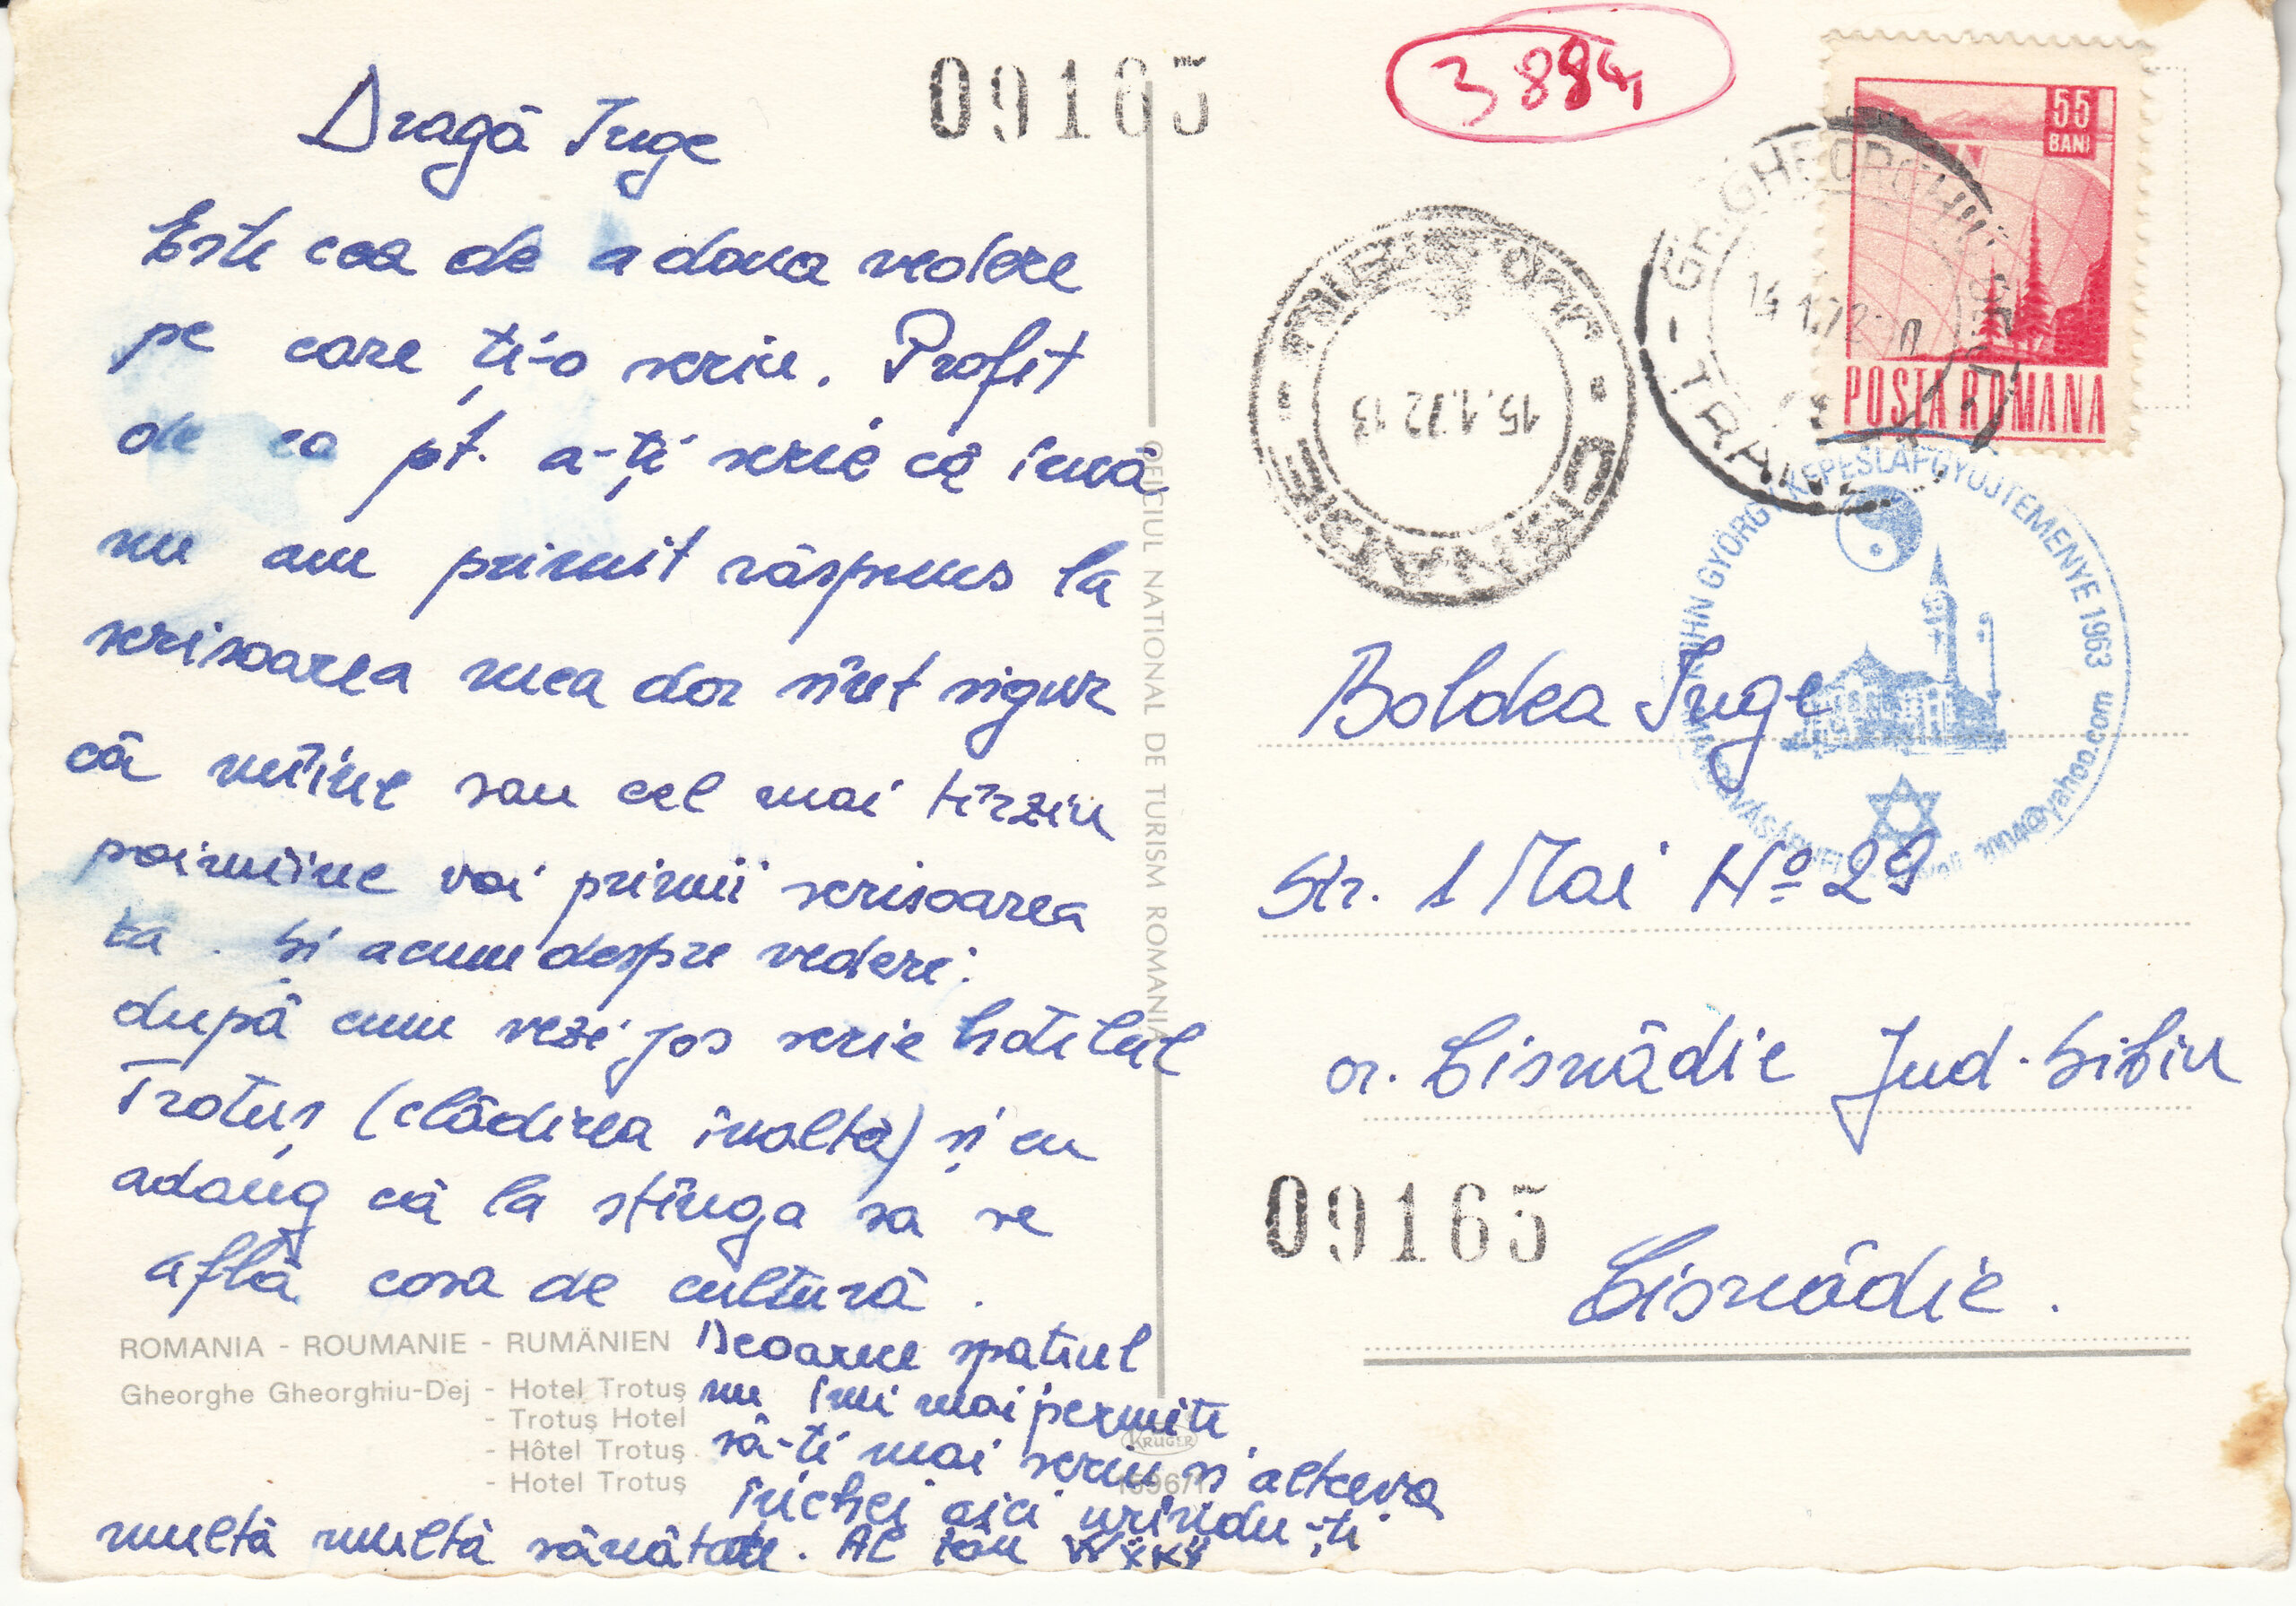 Dragă Inge
Este cea de a doua vedere
pe care ți-o scriu. Profit
de ea pt. a-ți scrie că încă
nu am primit răspuns la
scrisoarea mea dar sînt sigur
că mîine sau cel mai tîrziu
poimîine voi primii scrisoarea
ta. Și acum despre vedere:
după cum vezi jos scrie hotelul
Trotuș (clădirea înaltă) și eu
adaug că la stînga sa se
află casa de cultură.
Deoarece spatiul
nu îmi mai permite
să-ti mai scriu și altceva
închei aici urîndu-ți
multă multă sănătate. Al tău
ROMANIA - ROUMANIE - RUMÄNIEN
Gheorghe Gheorghiu-Dej - Hotel Trotuș
- Trotuș Hotel
- Hôtel Trotuș
- Hotel Trotuș
OFICIUL NATIONAL DE TURISM ROMANIA
KRUGER
1596/1
09165
3884
55
BANI
POSTA ROMANA
GH GHEORGHIU DEJ
14.1.72
- TRANS
15.1.72 13
CISNADIE
GYÖRGY KÉPESLAPGYŰJTEMÉNYE 1963
2004@yahoo.com
Boldea Inge
Str. 1 Mai No 29
or. Cisnădie Jud. Sibiu
09165
Cisnădie.